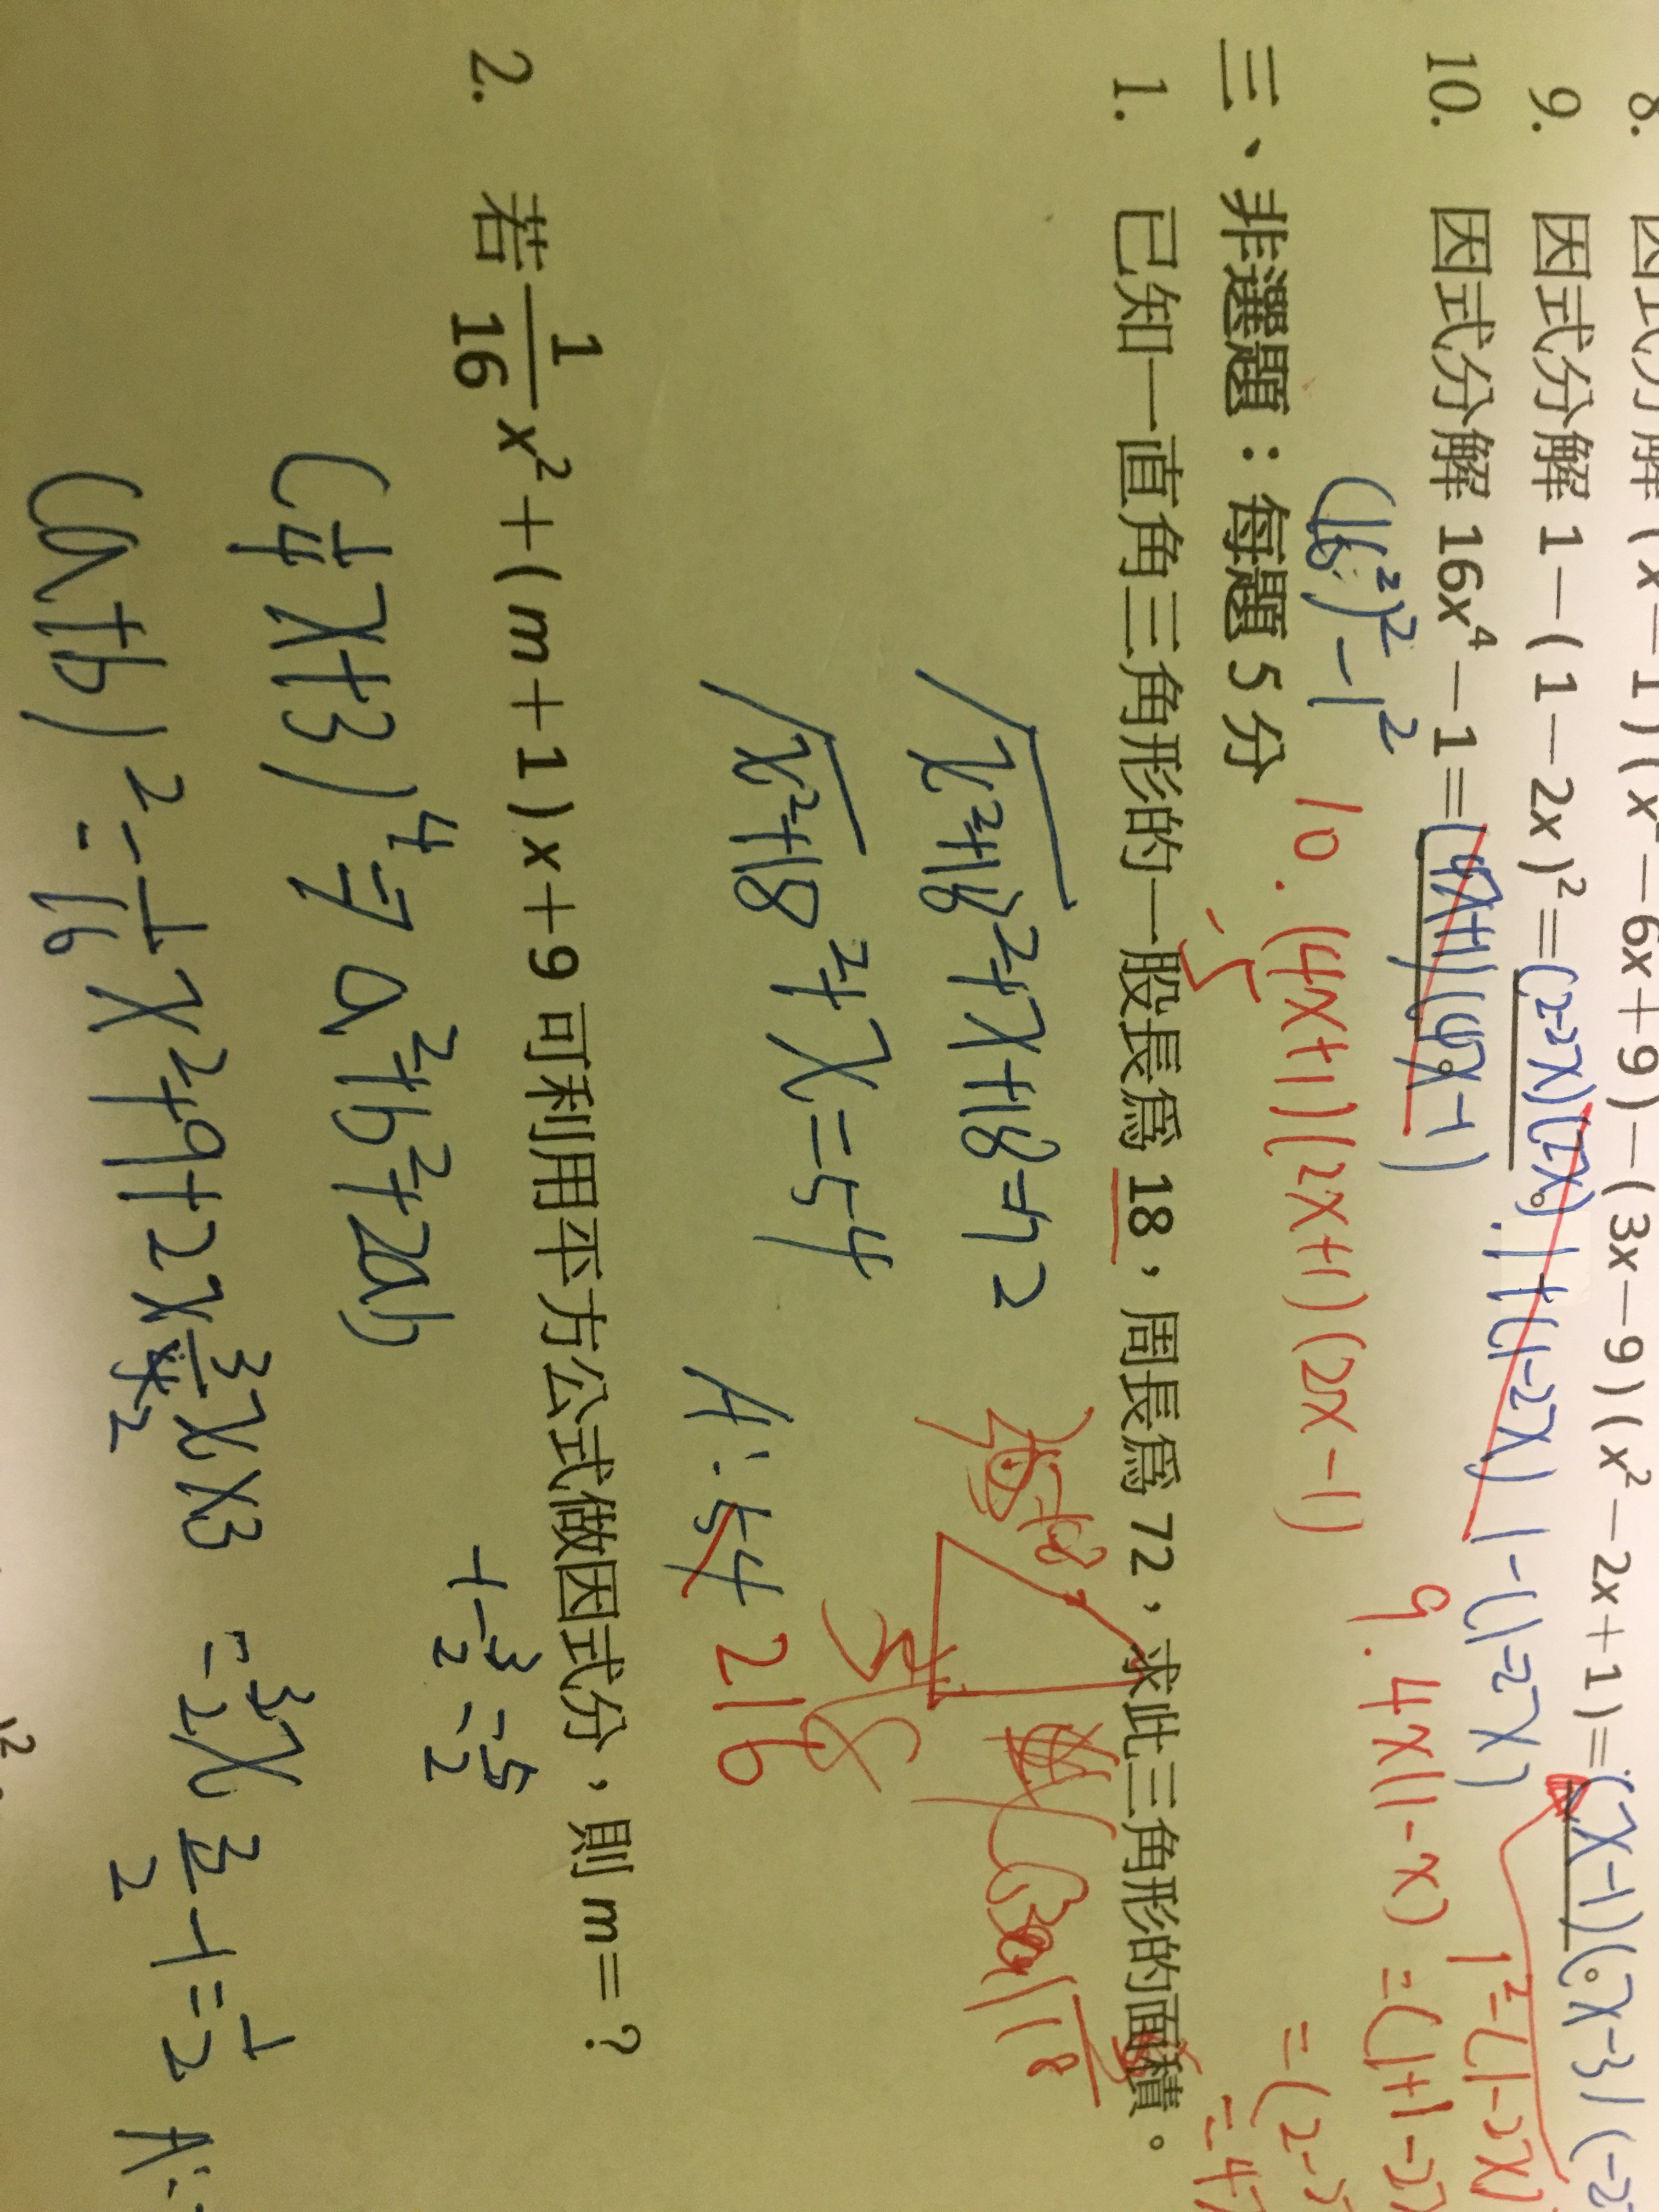 8. 因式分解 (x-1)(x²-6x+9)-(3x-9)(x²-2x+1)=(x-1)(x-3)(-2
9. 因式分解 1-(1-2x)²=(2-2x)(2x)。 1+(1-2x) 1-(1-2x) 1²-(1-2x)
10. 因式分解 16x⁴-1=(4x+1)(4x-1)。 9. 4x(1-x) =(1+1-2
(16²)²-1² 10. (4x+1)(2x+1)(2x-1) =(2-2
三、非選題：每題 5 分 =4
1. 已知一直角三角形的一股長爲 18，周長爲 72，求此三角形的面積。
√x²+18²+x+18=72
√x²+18²+x=54
A:54 216
2. 若 1/16 x²+(m+1)x+9 可利用平方公式做因式分，則 m=？
-1-3/2=-5/2
(1/4x+3) a²+b²+2ab
(a+b)²=1/16x²+9+2x x3 =3/2x 3/2-1=1/2 A: